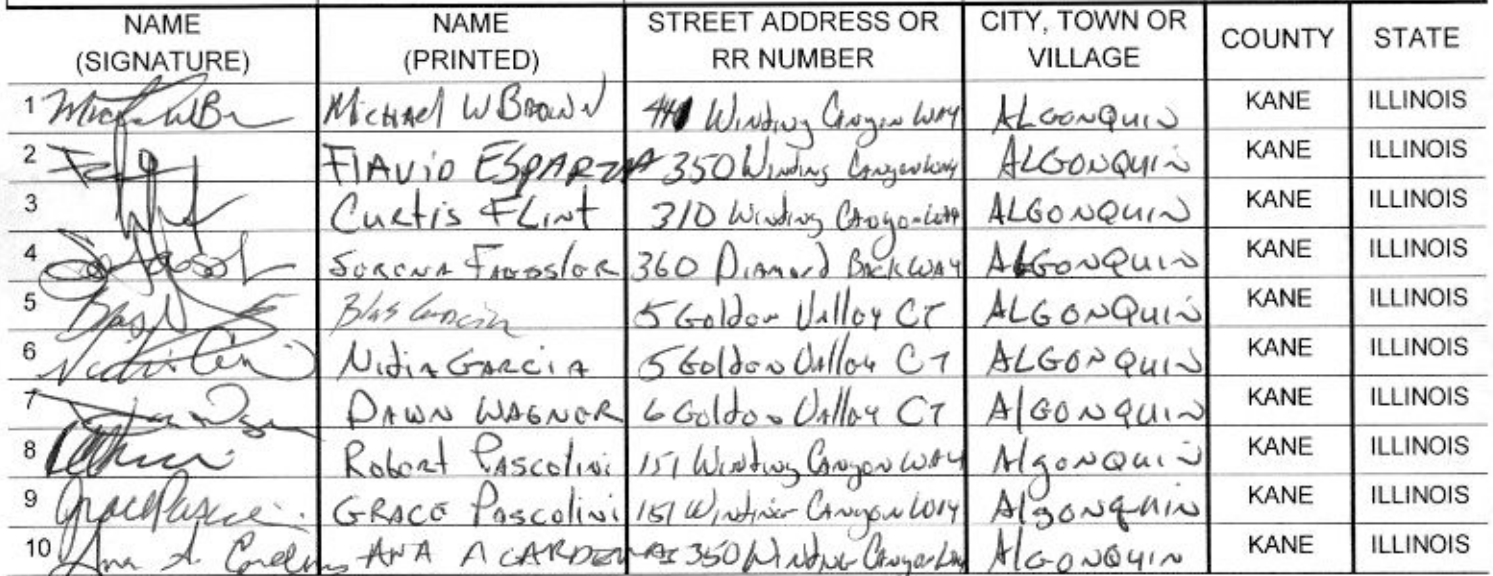 NAME (SIGNATURE) NAME (PRINTED) STREET ADDRESS OR RR NUMBER CITY, TOWN OR VILLAGE COUNTY STATE
1 Michael W Brown Winding Canyon Way ALGONQUIN KANE ILLINOIS
2 FLAVIO ESPARZA 350 Winding Canyon Way ALGONQUIN KANE ILLINOIS
3 Curtis FLint 310 Winding Canyon Way ALGONQUIN KANE ILLINOIS
4 360 Diamond Back WAY ALGONQUIN KANE ILLINOIS
5 Blas Garcia 5 Golden Valley CT ALGONQUIN KANE ILLINOIS
6 Nidia GARCIA 5 Golden Valley CT ALGONQUIN KANE ILLINOIS
7 DAWN WAGNER 6 Golden Valley CT AlGONQUIN KANE ILLINOIS
8 Robert Pascolini 151 Winding Canyon WAY AlgonQuin KANE ILLINOIS
9 Grace GRACE Pascolini 151 Winding Canyon WAY AlgonQuin KANE ILLINOIS
10 Ana A. ANA A CARDENAS 350 Winding Canyon Way AlGONQUIN KANE ILLINOIS